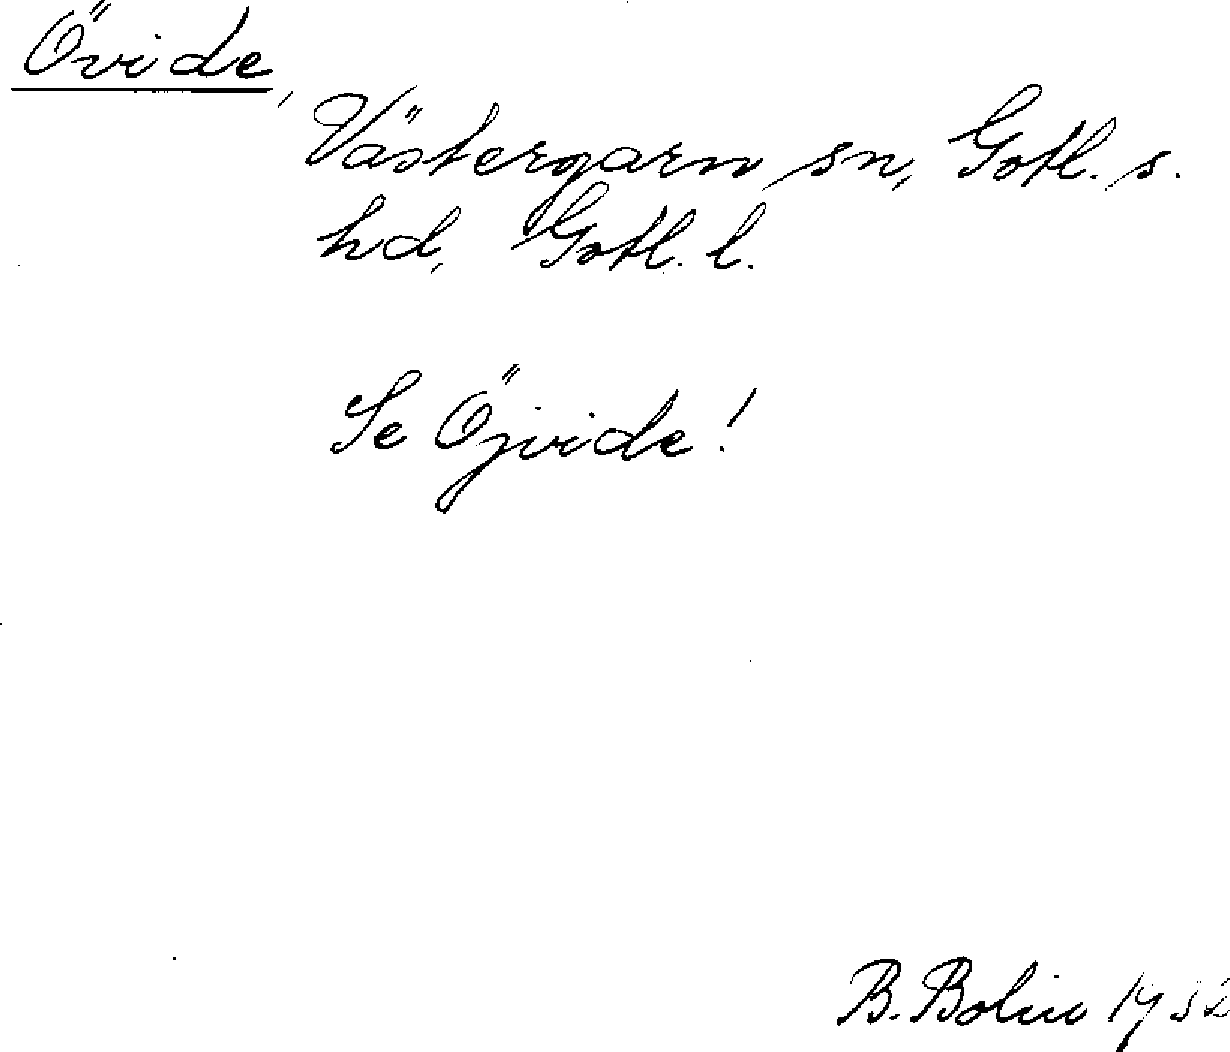 Övide,
Västergarn sn, Gotl. s.
hd, Gotl. l.
Se Öjvide!
B. Bolin 1932